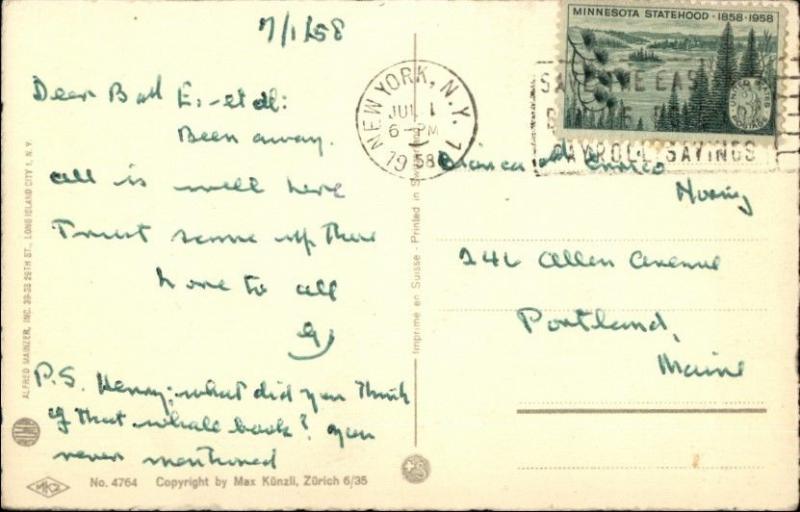 7/1/58
Dear B and E. - et al:
Been away.
all is well here
Trust same up there
Love to all
P.S. Henry: what did you think
of that whale book? you
never mentioned
ALFRED MAINZER, INC. 39-33 29TH ST., LONG ISLAND CITY 1, N.Y.
No. 4764 Copyright by Max Künzli, Zürich 6/35
Imprimé en Suisse - Printed in Switzerland
NEW YORK, N.Y. 7
JUL 1
6-PM
19 58
MINNESOTA STATEHOOD · 1858-1958
PAYROLL SAVINGS
Bianca and Enrico
242 Allen Avenue
Portland,
Maine